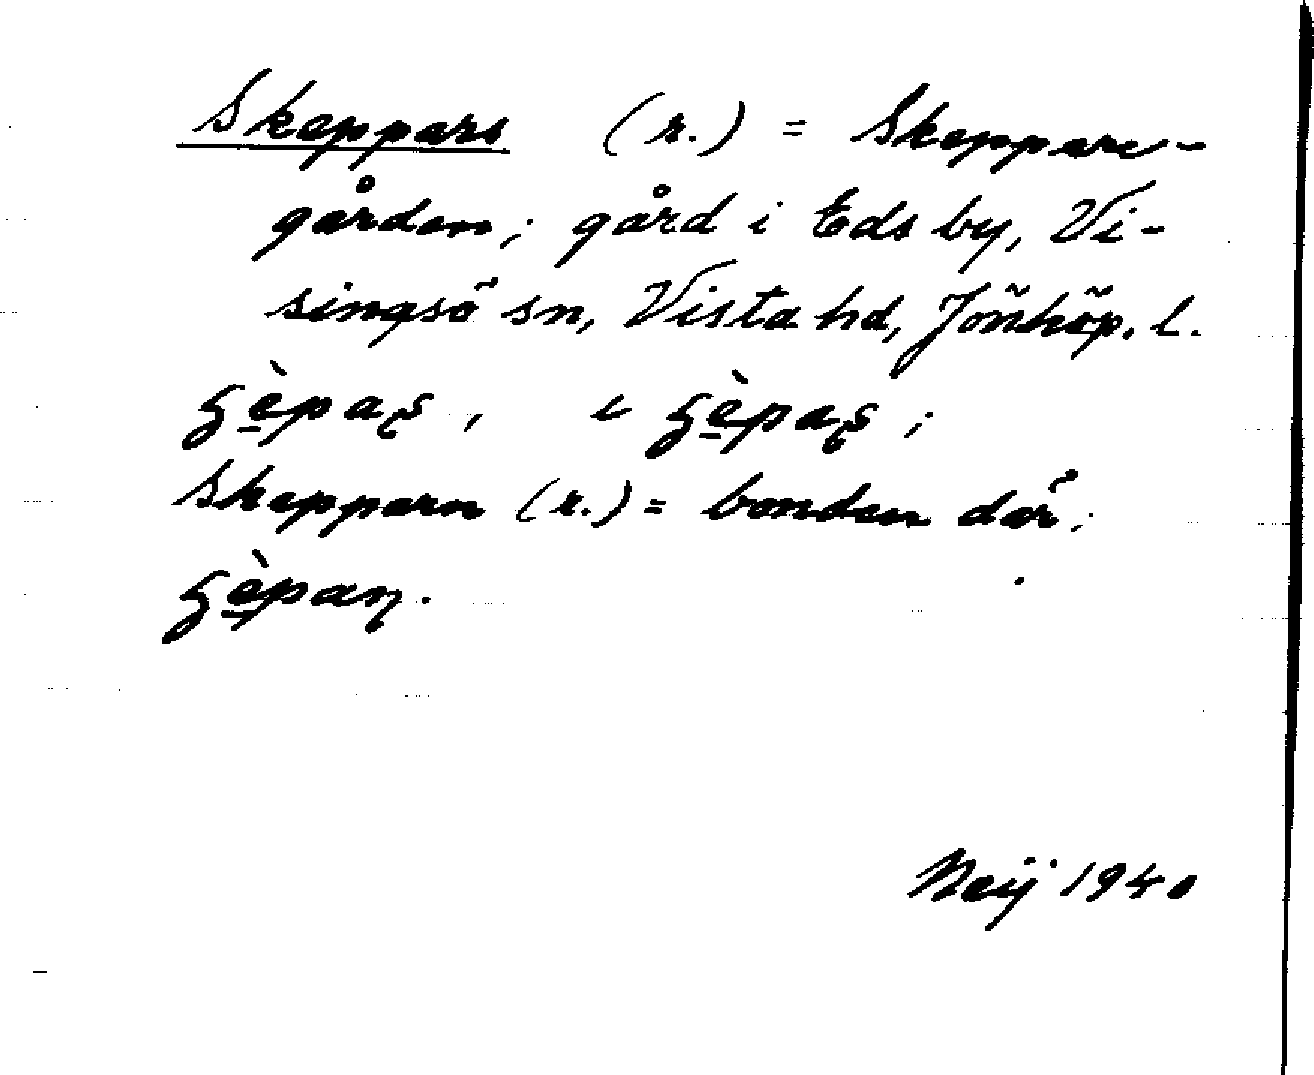 Skeppars (r.) = Skeppare-
gården; gård i Eds by, Vi-
singsö sn, Vista hd, Jönköp. l.
ʂèpaʂ, i ʂèpaʂ;
Skepparn (r.) = bonden där:
ʂèpaɳ.
Neij 1940